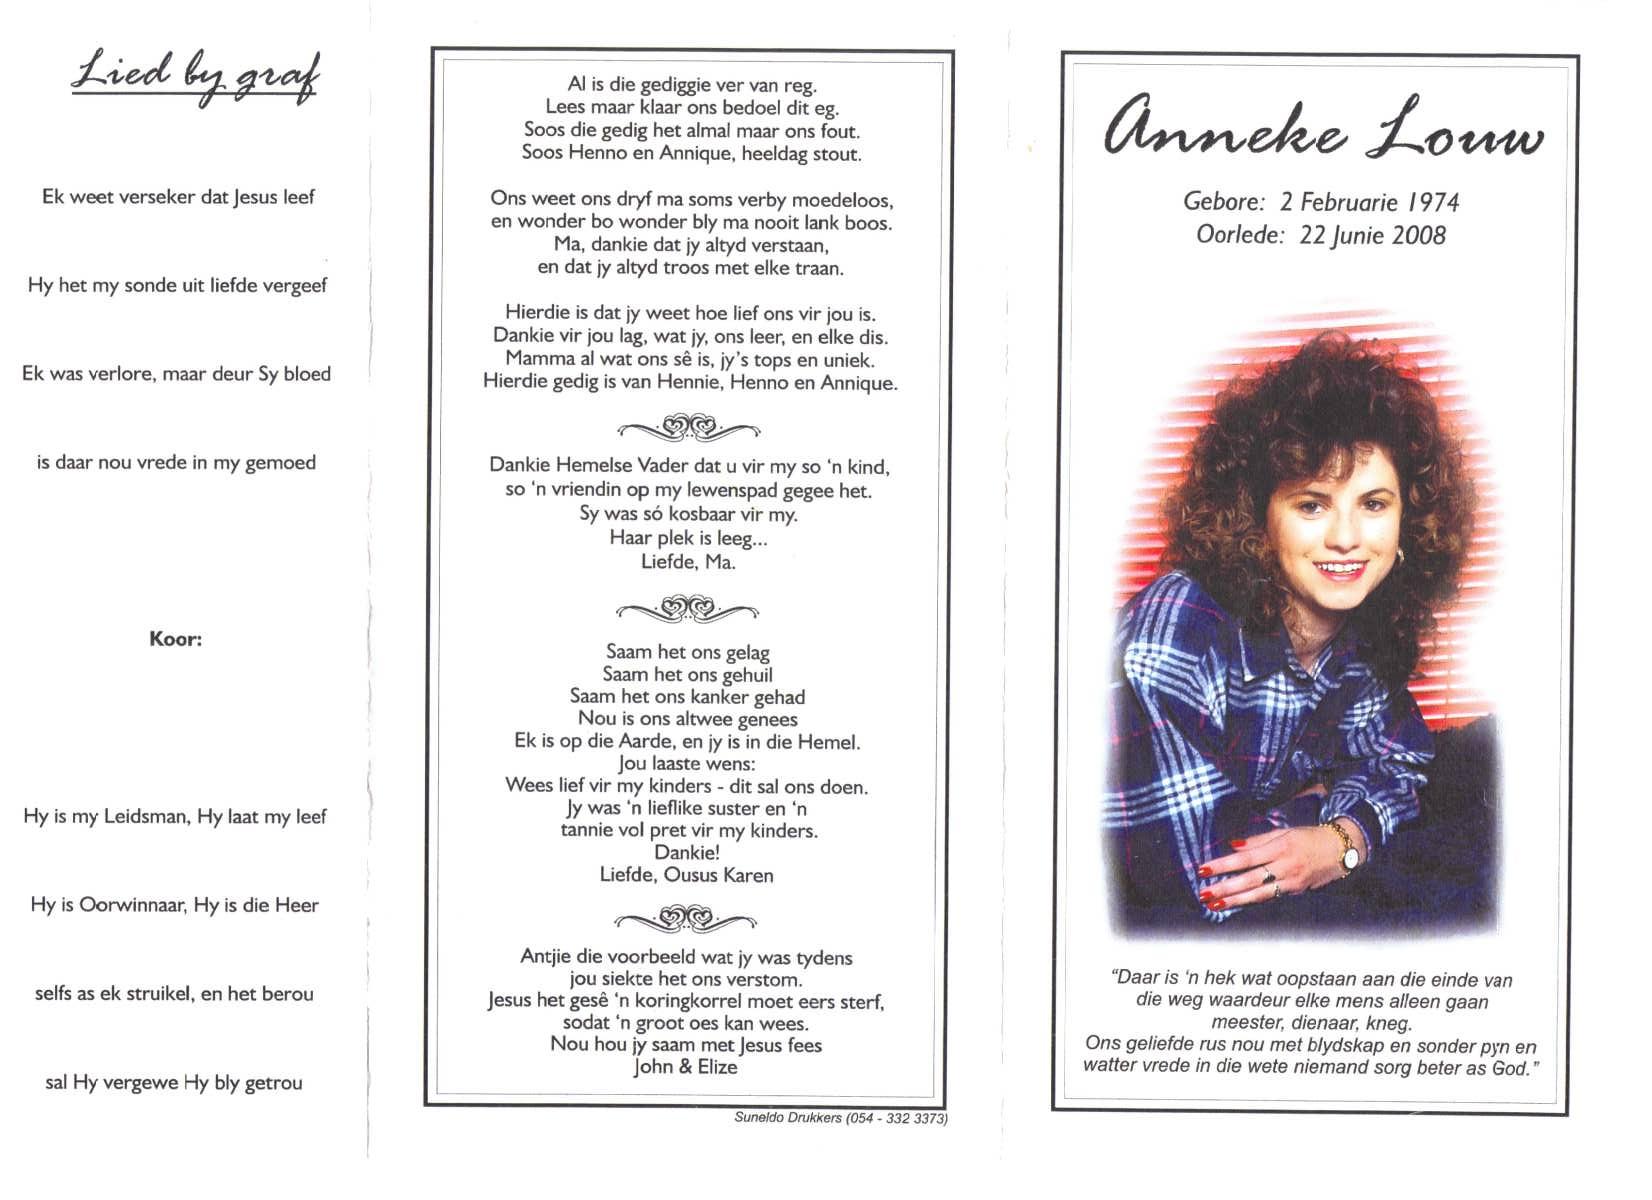 Lied by graf
Ek weet verseker dat Jesus leef
Hy het my sonde uit liefde vergeef
Ek was verlore, maar deur Sy bloed
is daar nou vrede in my gemoed
Koor:
Hy is my Leidsman, Hy laat my leef
Hy is Oorwinnaar, Hy is die Heer
selfs as ek struikel, en het berou
sal Hy vergewe Hy bly getrou
Al is die gediggie ver van reg.
Lees maar klaar ons bedoel dit eg.
Soos die gedig het almal maar ons fout.
Soos Henno en Annique, heeldag stout.
Ons weet ons dryf ma soms verby moedeloos,
en wonder bo wonder bly ma nooit lank boos.
Ma, dankie dat jy altyd verstaan,
en dat jy altyd troos met elke traan.
Hierdie is dat jy weet hoe lief ons vir jou is.
Dankie vir jou lag, wat jy, ons leer, en elke dis.
Mamma al wat ons sê is, jy's tops en uniek.
Hierdie gedig is van Hennie, Henno en Annique.
Dankie Hemelse Vader dat u vir my so 'n kind,
so 'n vriendin op my lewenspad gegee het.
Sy was só kosbaar vir my.
Haar plek is leeg...
Liefde, Ma.
Saam het ons gelag
Saam het ons gehuil
Saam het ons kanker gehad
Nou is ons altwee genees
Ek is op die Aarde, en jy is in die Hemel.
Jou laaste wens:
Wees lief vir my kinders - dit sal ons doen.
Jy was 'n lieflike suster en 'n
tannie vol pret vir my kinders.
Dankie!
Liefde, Ousus Karen
Antjie die voorbeeld wat jy was tydens
jou siekte het ons verstom.
Jesus het gesê 'n koringkorrel moet eers sterf,
sodat 'n groot oes kan wees.
Nou hou jy saam met Jesus fees
John & Elize
Suneldo Drukkers (054 - 332 3373)
Anneke Louw
Gebore: 2 Februarie 1974
Oorlede: 22 Junie 2008
"Daar is 'n hek wat oopstaan aan die einde van
die weg waardeur elke mens alleen gaan
meester, dienaar, kneg.
Ons geliefde rus nou met blydskap en sonder pyn en
watter vrede in die wete niemand sorg beter as God."